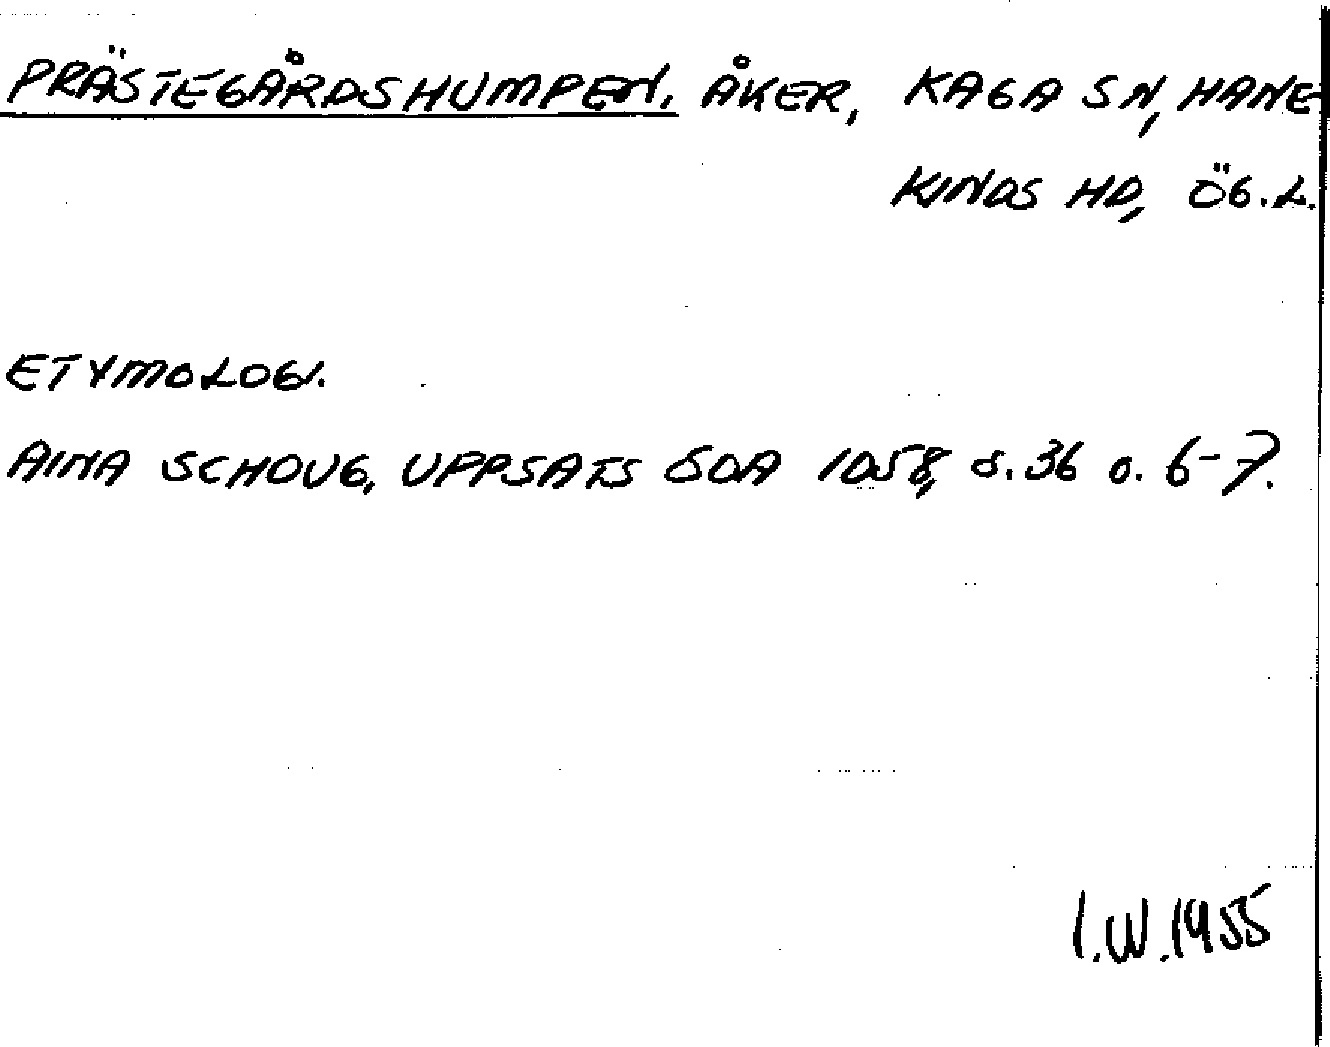 PRÄSTEGÅRDSHUMPEN. ÅKER, KAGA SN, HANE-
KINDS HD, ÖG.L.
ETYMOLOGI.
AINA SCHOUG, UPPSATS SOA 1058, S. 36 O. 6-7.
I.W.1955